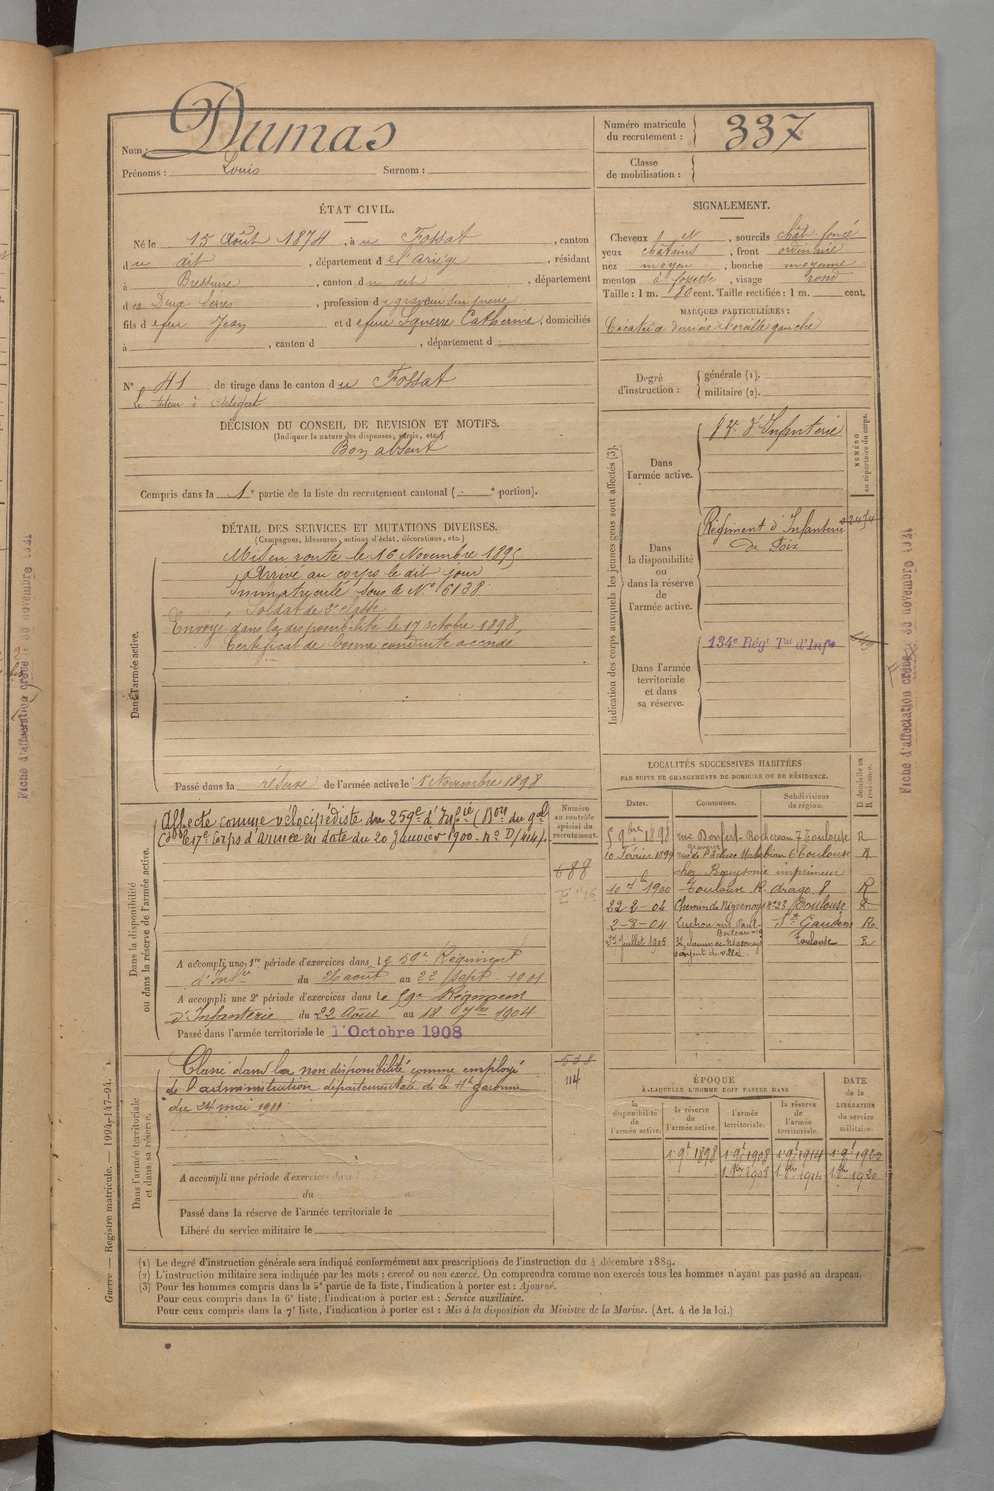 Nom : Dumas
Prénoms : Louis Surnom :
Numéro matricule du recrutement : 337
Classe de mobilisation :
ÉTAT CIVIL.
Né le 15 Août 1874, à u Fossat, canton
du dit, département de l'Ariège, résidant
à Bressuire, canton du dit, département
des Deux Sèvres, profession de graveur sur pierre
fils de feu Jean et de feue Squerre Catherine, domiciliés
à , canton d , département d
N° 41 de tirage dans le canton du Fossat
DÉCISION DU CONSEIL DE REVISION ET MOTIFS.
(Indiquer la nature des dispenses, sursis, etc.)
Bon absent
Compris dans la 1e partie de la liste du recrutement cantonal ( e portion).
SIGNALEMENT.
Cheveux , sourcils chât. foncé
yeux châtains, front ordinaire
nez moyen, bouche moyenne
menton à fossette, visage rond
Taille : 1 m. 80 cent. Taille rectifiée : 1 m. cent.
MARQUES PARTICULIÈRES :
Cicatrice derrière l'oreille gauche
Degré d'instruction : générale (1). militaire (2).
DÉTAIL DES SERVICES ET MUTATIONS DIVERSES.
(Campagnes, blessures, actions d'éclat, décorations, etc.)
Dans l'armée active.
Mis en route le 16 Novembre 1895
Arrivé au corps le dit jour
Immatriculé sous le N° 6138
Soldat de 2e classe
Envoyé dans la disponibilité le 17 octobre 1898,
Certificat de bonne conduite accordé
Passé dans la réserve de l'armée active le 1 Novembre 1898
Indication des corps auxquels les jeunes gens sont affectés (3).
NUMÉRO au répertoire du corps.
Dans l'armée active.
d'Infanterie
Dans la disponibilité ou dans la réserve de l'armée active.
Régiment d'Infanterie
de Foix
Dans l'armée territoriale et dans sa réserve.
134e Régt Tal d'Infie
Dans la disponibilité ou dans la réserve de l'armée active.
Numéro au contrôle spécial du recrutement.
Affecté comme vélocipédiste du 259e d'Infie (Bon du gal
Cdt le 17e Corps d'Armée en date du 20 Janvier 1900 - n° D/1414).
688
A accompli une 1re période d'exercices dans le 59e Régiment
d'Infie du 26 août au 22 Sept 1901
A accompli une 2e période d'exercices dans le 59e Régiment
d'Infanterie du 22 Août au 18 7bre 1904
Passé dans l'armée territoriale le 1 Octobre 1908
Dans l'armée territoriale et dans sa réserve.
Classé dans la non disponibilité comme employé
de l'administration départementale de la Hte Garonne
du 24 mai 1911
538
114
A accompli une période d'exercices dans
du au
Passé dans la réserve de l'armée territoriale le
Libéré du service militaire le
LOCALITÉS SUCCESSIVES HABITÉES
PAR SUITE DE CHANGEMENTS DE DOMICILE OU DE RÉSIDENCE.
D domicile ou R résidence.
Dates. Communes. Subdivisions de région.
5 9bre 1898 rue Denfert Rochereau 7 Toulouse R
10 Février 1899 rue de l'Écluse Matabiau 6 Toulouse R
chez Bouysonie imprimeur
1900 Toulouse R. drago 8 R
22-2-04 Chemin de Négreneys n° 23 Toulouse R
2-8-04 Luchon rue Boileau St Gaudens R
27 Juillet 1905 32 chemin de Négreneys Toulouse R
sergent de ville
ÉPOQUE
À LAQUELLE L'HOMME DOIT PASSER DANS
DATE de la LIBÉRATION du service militaire.
la disponibilité de l'armée active. la réserve de l'armée active. l'armée territoriale. la réserve de l'armée territoriale.
1 9b 1898 1 9b 1908 1 9b 1914 1 9b 1920
1 8bre 1908 1 8bre 1914 1 8bre 1920
(1) Le degré d'instruction générale sera indiqué conformément aux prescriptions de l'instruction du 4 décembre 1889.
(2) L'instruction militaire sera indiquée par les mots : exercé ou non exercé. On comprendra comme non exercés tous les hommes n'ayant pas passé au drapeau.
(3) Pour les hommes compris dans la 5e partie de la liste, l'indication à porter est : Ajourné.
Pour ceux compris dans la 6e liste, l'indication à porter est : Service auxiliaire.
Pour ceux compris dans la 7e liste, l'indication à porter est : Mis à la disposition du Ministre de la Marine. (Art. 4 de la loi.)
Guerre — Registre matricule. — 1994-147-94.
Fiche d'affectation créée le 30 novembre 1921
Fiche d'affectation créée le 30 novembre 1921